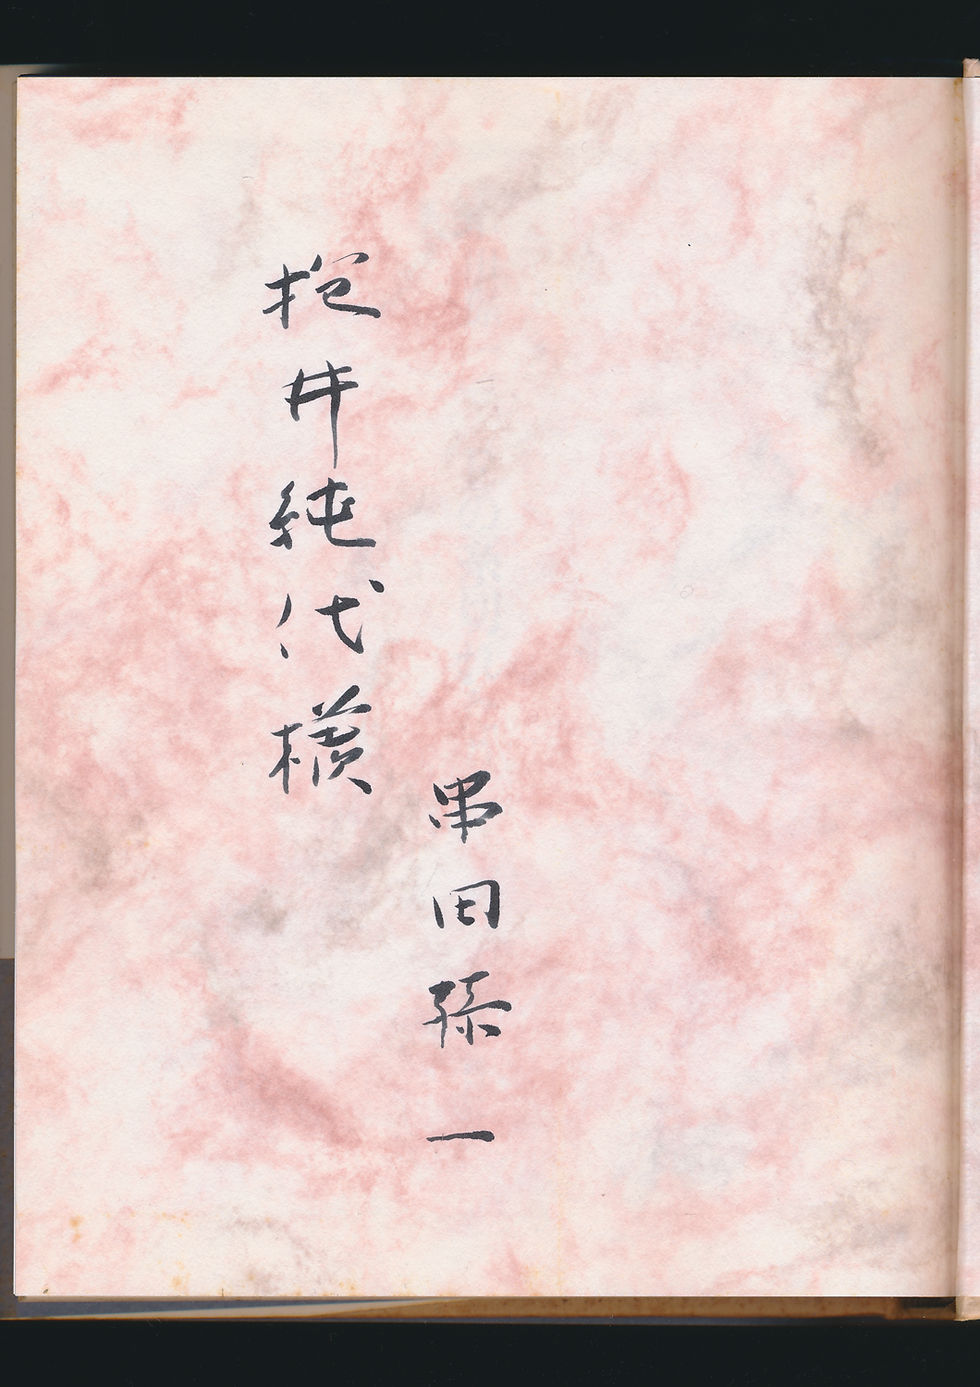 串田孫一
桜井純代様